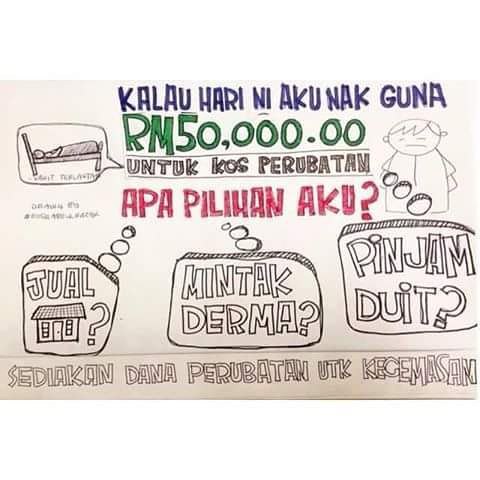 KALAU HARI NI AKU NAK GUNA
RM50,000.00
UNTUK KOS PERUBATAN
SAKIT TERLANTAR
APA PILIHAN AKU?
JUAL
?
MINTAK
DERMA?
PINJAM
DUIT?
SEDIAKAN DANA PERUBATAN UTK KECEMASAN